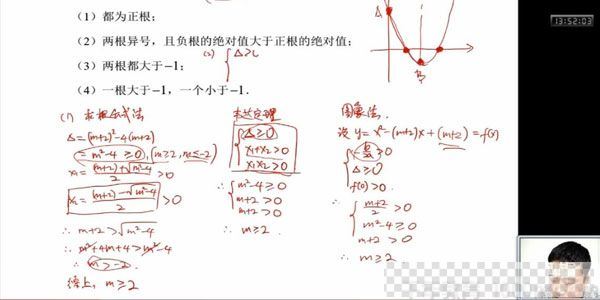 13:52:03
（1）都为正根；
（2）两根异号，且负根的绝对值大于正根的绝对值；
（3）两根都大于−1；
（4）一根大于−1，一个小于−1．
(1) 求根公式法
Δ=(m+2)²-4(m+2)
=m²-4≥0, (m≥2, m≤-2)
x₁=((m+2)+√(m²-4))/2>0
x₂=((m+2)-√(m²-4))/2>0
∴ m+2>√(m²-4)
∴ m²+4m+4>m²-4
∴ m>-2.
综上, m≥2
韦达定理
Δ≥0
x₁+x₂>0
x₁x₂>0
∴ m²-4≥0
m+2>0
m+2>0
∴ m≥2.
图象法.
设 y=x²-(m+2)x+(m+2)=f(x)
Δ≥0
f(0)>0.
∴ (m+2)/2>0
m²-4≥0
m+2>0
∴ m≥2